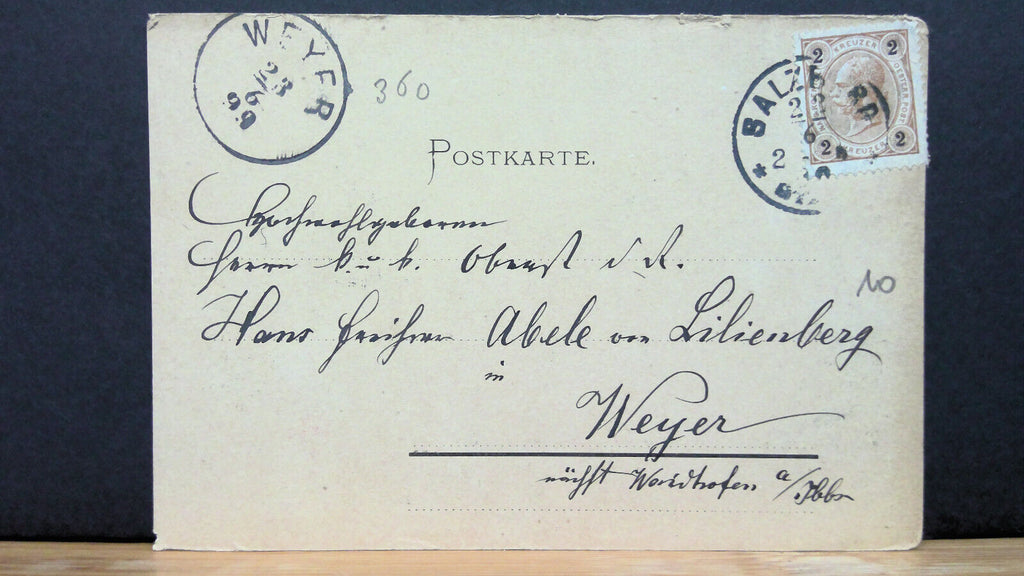 WEYER
23
96
360
SALZ
2
KREUZER
2
2
KREUZER
2
POSTKARTE.
10
Hochwohlgeboren
Herrn k. u. k. Oberst d. R.
Hans Freiherrn Abele von Lilienberg
in
Weyer
nächst Waidhofen a/Ybbs